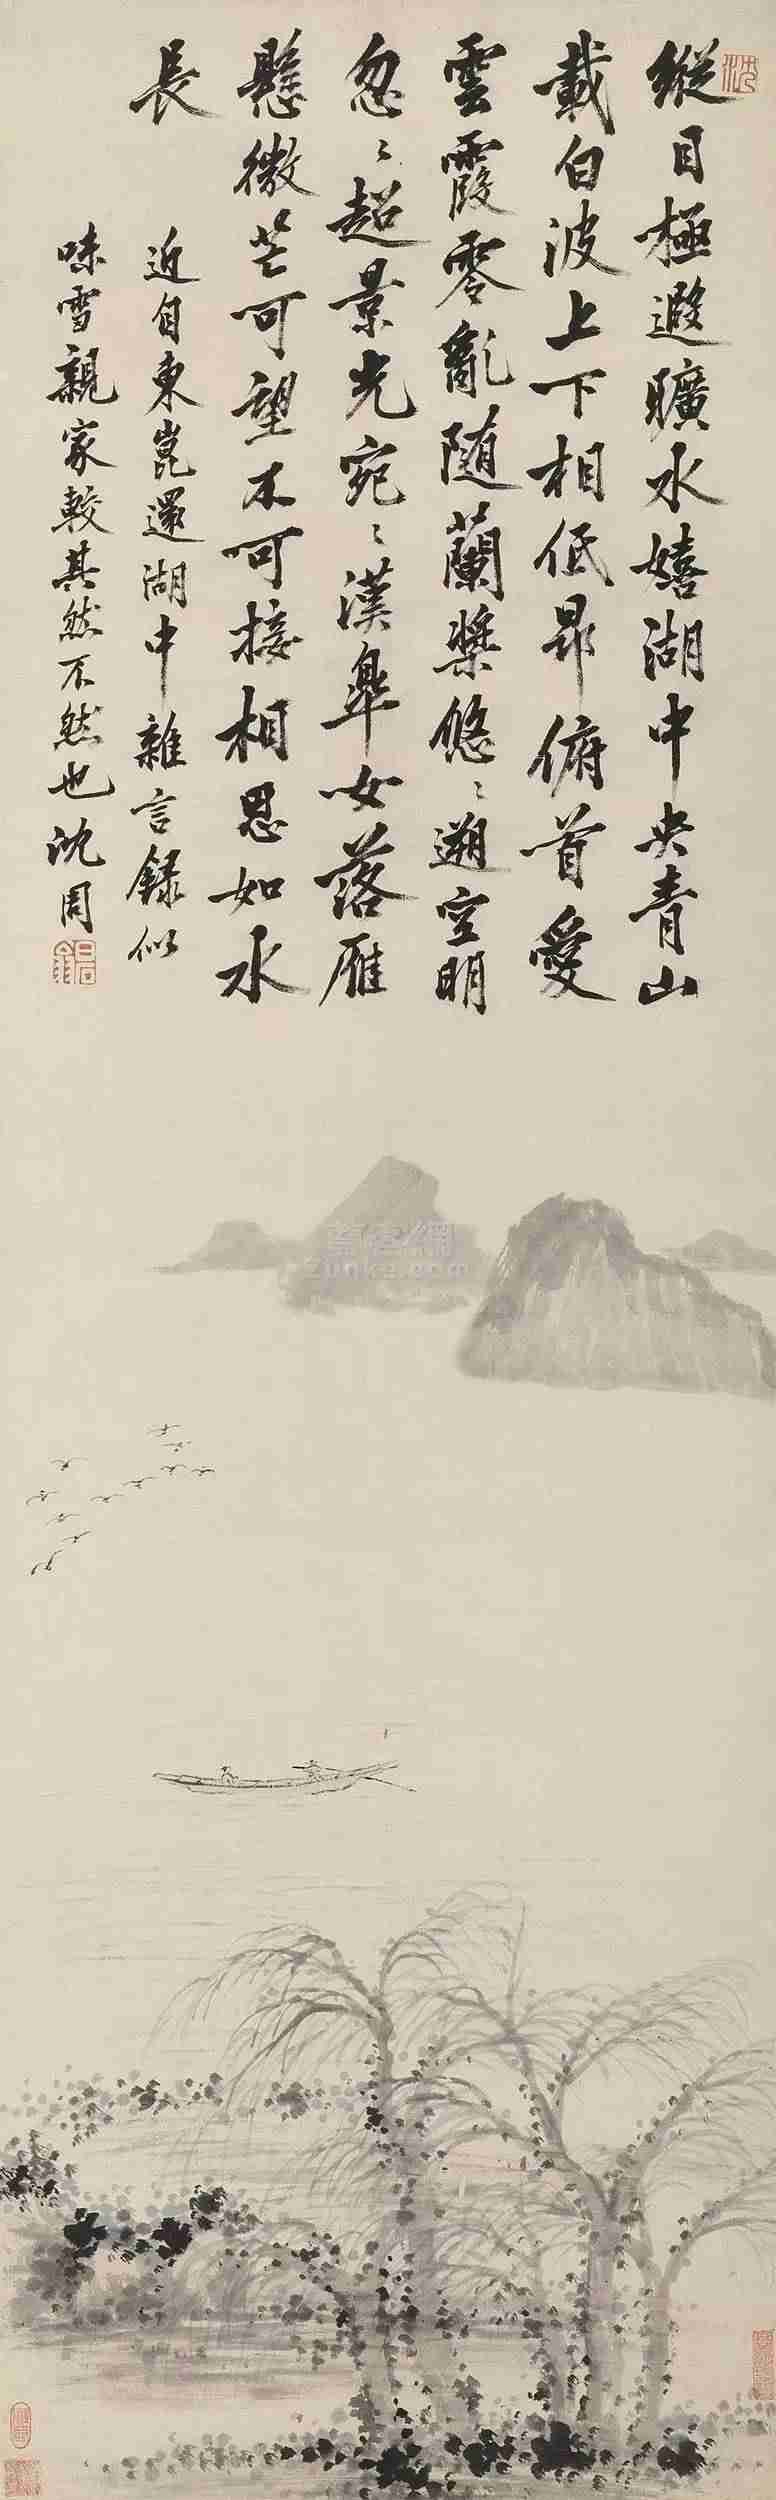 縱目極遐曠水嬉湖中央青山
載白波上下相低昂俯首愛
雲霞零亂随蘭槳悠〻遡空明
忽〻超景光宛〻漢皐女落雁
懸微茫可望不可接相思如水
長
近自東崑還湖中雜言録似
味雪親家較其然不然也沈周
尊客網
zunke.com